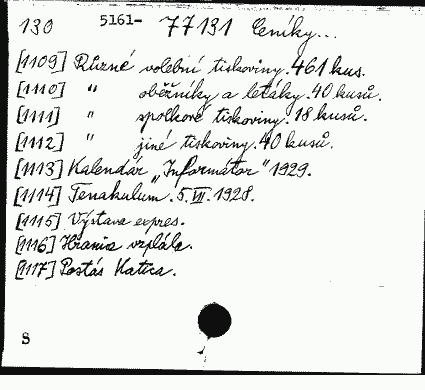 130 5161- 77131 Ceníky...
[1109] Různé volební tiskoviny. 461 kus.
[1110] " oběžníky a letáky. 40 kusů.
[1111] " spolkové tiskoviny. 18 kusů.
[1112] " jiné tiskoviny. 40 kusů.
[1113] Kalendár „Informátor" 1929.
[1114] Tenakulum. 5. VII. 1928.
[1115] Výstava expres.
[1116] Hranice vzplála.
[1117] Postás Katica.
S